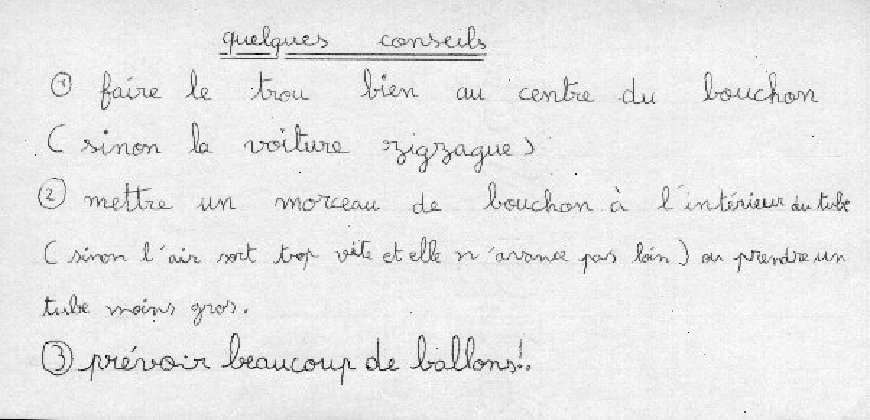 quelques conseils
① faire le trou bien au centre du bouchon
( sinon la voiture zigzague )
② mettre un morceau de bouchon à l'intérieur du tube
( sinon l'air sort trop vite et elle n'avance pas loin ) ou prendre un
tube moins gros.
③ prévoir beaucoup de ballons!.